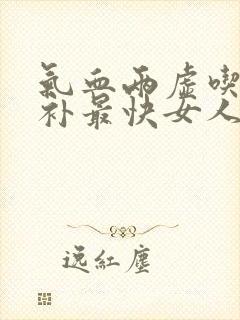 氣血兩虛喫
补最快女人
逸紅塵